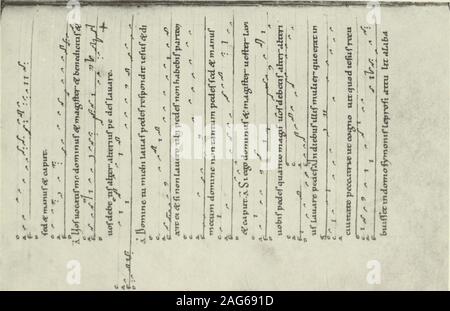 sed & manus & caput.
A Vos uocatis me dominus & magister & benedictus &
uos debe tis alter alterius pe des lauare.
A Domine tu michi lauas pedes respondit iesus & di
xit ei & si non lauero tibi pedes non habebis partem
mecum domine non tantum pedes sed & manus
& caput. A Si ego dominus & magister uester
uobis pedes quanto magis uos debetis alter alteri
us lauare pedes. In diebus illis mulier que erat in
ciuitate peccatrix ut cogno uit quod iesus recu
buisset in domo symonis leprosi attu lit alaba
alamy
2AG691D